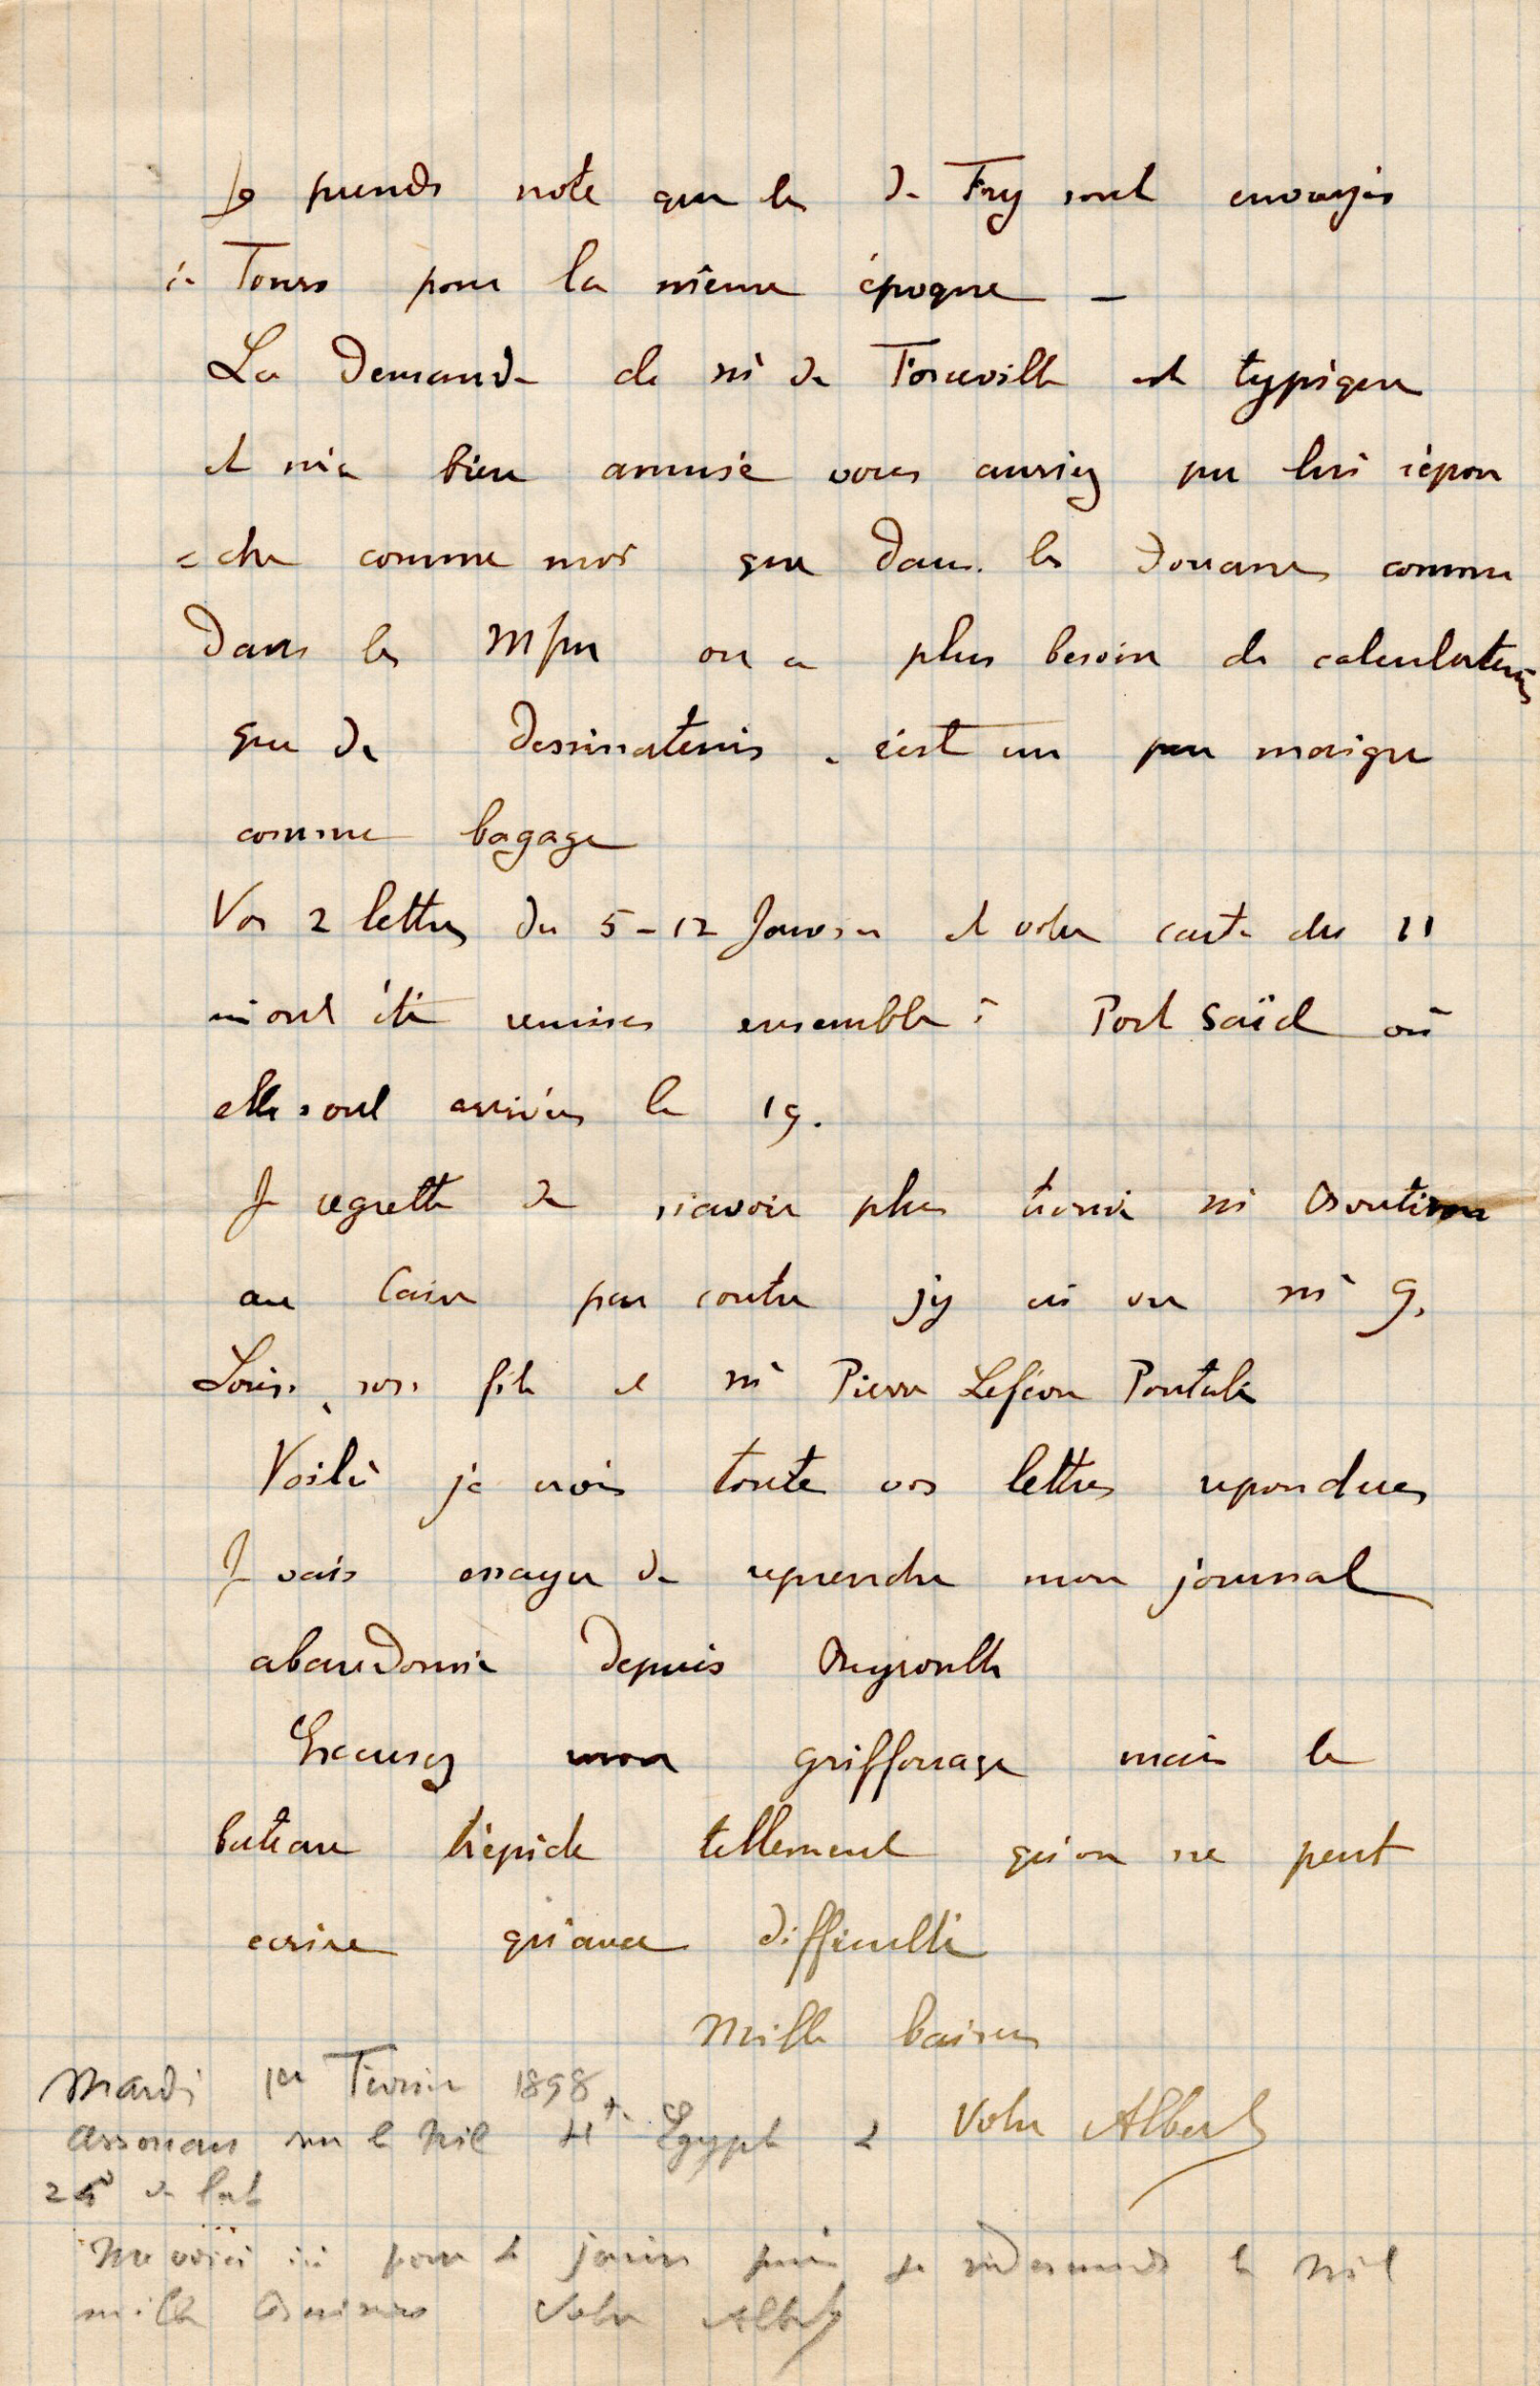 Je prends note que les de Fry sont envoyés
à Tours pour la même époque –
La demande de Mr de Foucville est typique
et m'a bien amusé vous auriez pu lui répon
=dre comme moi que dans les Douanes comme
dans les Mfres on a plus besoin de calculateurs
que de dessinateurs. c'est un peu maigre
comme bagage
Vos 2 lettres du 5-12 Janvier et votre carte du 11
m'ont été remises ensemble à Port Saïd où
elles sont arrivées le 19.
Je regrette de n'avoir plus trouvé Mr
au Caire par contre j'y ai vu Mr G.
Louis, son fils et Mr Pierre Lefèvre Pontalis
Voilà je crois toute vos lettres repondues
Je vais essayer de reprendre mon journal
abandonné depuis Beyrouth
Excusez mon griffonage mais le
bateau trépide tellement qu'on ne peut
ecrire qu'avec difficulté
Mille baisers
Votre Albert
Mardi 1er Février 1898
Assouan sur le Nil Hte Egypte
24° de lat
Me voici ici pour 2 jours puis je redescends le Nil
mille baisers Votre Albert